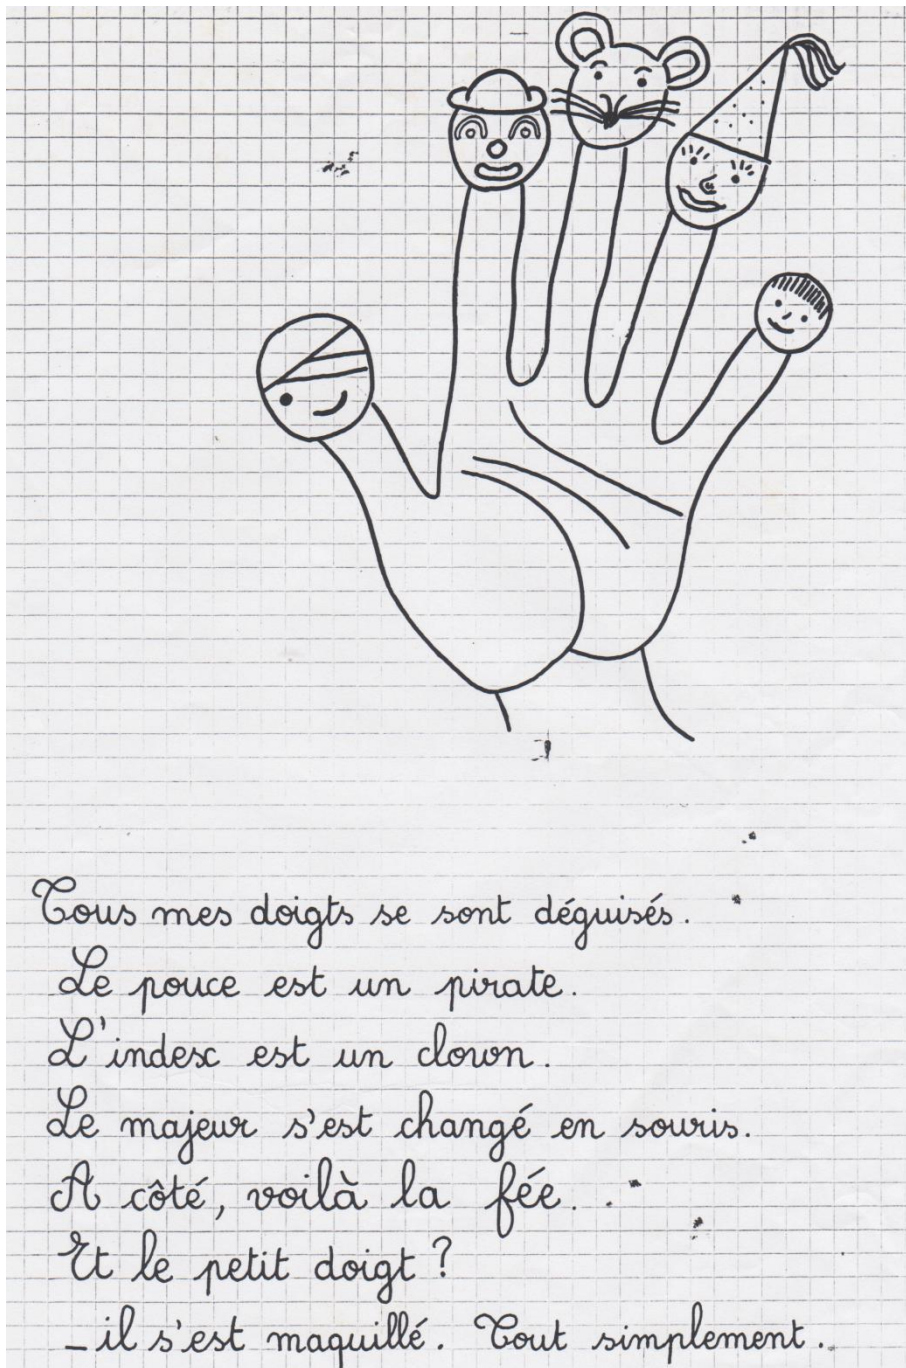 Tous mes doigts se sont déguisés.
Le pouce est un pirate.
L'index est un clown.
Le majeur s'est changé en souris.
A côté, voilà la fée.
Et le petit doigt ?
_ il s'est maquillé. Tout simplement.